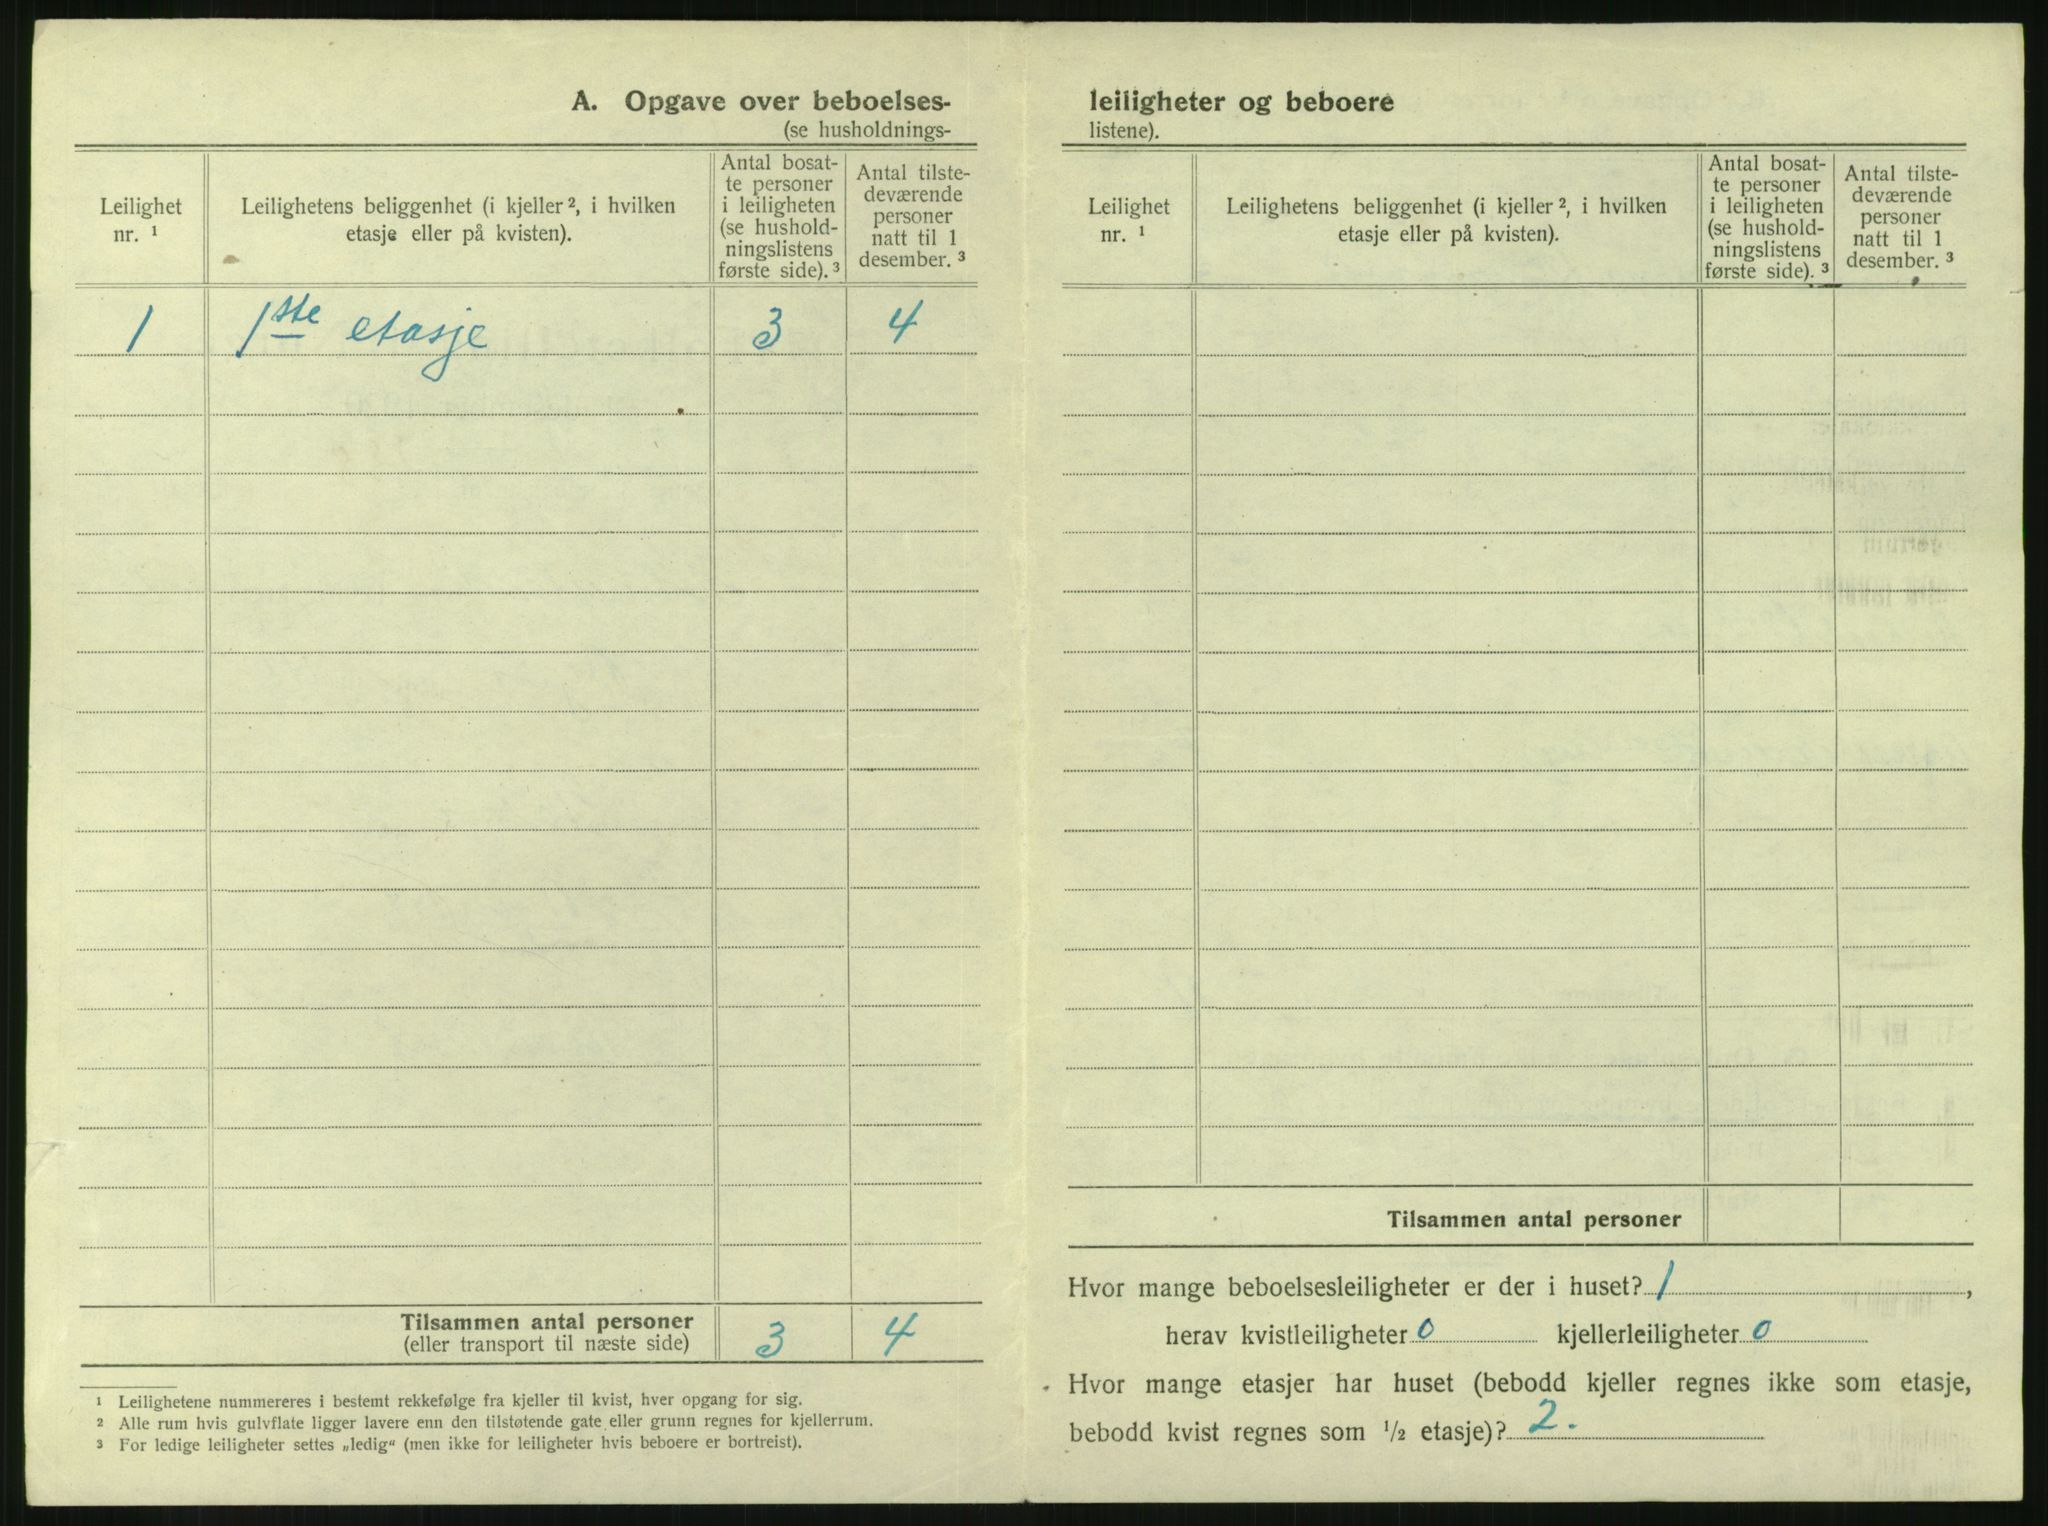 A. Opgave over beboelses-
(se husholdnings-
Leilighet
nr. ¹
Leilighetens beliggenhet (i kjeller ², i hvilken
etasje eller på kvisten).
Antal bosat-
te personer
i leiligheten
(se hushold-
ningslistens
første side). ³
Antal tilste-
deværende
personer
natt til 1
desember. ³
1 1ste etasje 3 4
Tilsammen antal personer
(eller transport til næste side) 3 4
¹ Leilighetene nummereres i bestemt rekkefølge fra kjeller til kvist, hver opgang for sig.
² Alle rum hvis gulvflate ligger lavere enn den tilstøtende gate eller grunn regnes for kjellerrum.
³ For ledige leiligheter settes „ledig“ (men ikke for leiligheter hvis beboere er bortreist).
leiligheter og beboere
listene).
Leilighet
nr. ¹
Leilighetens beliggenhet (i kjeller ², i hvilken
etasje eller på kvisten).
Antal bosat-
te personer
i leiligheten
(se hushold-
ningslistens
første side). ³
Antal tilste-
deværende
personer
natt til 1
desember. ³
Tilsammen antal personer
Hvor mange beboelsesleiligheter er der i huset? 1,
herav kvistleiligheter 0 kjellerleiligheter 0
Hvor mange etasjer har huset (bebodd kjeller regnes ikke som etasje,
bebodd kvist regnes som ½ etasje)? 2.